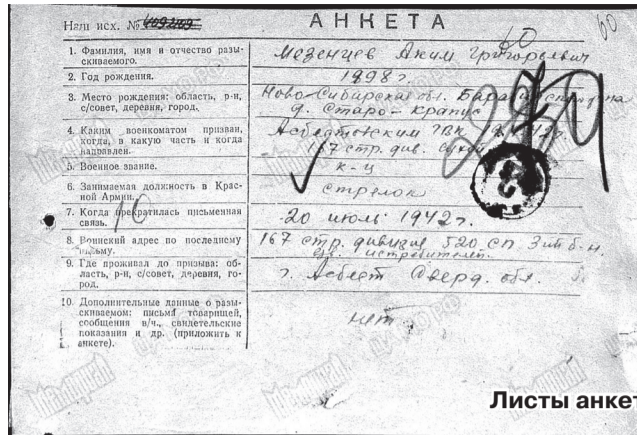 АНКЕТА
60
60
Наш исх. № 109209
1. Фамилия, имя и отчество разы-
скиваемого.
Мезенцев Аким Григорьевич
2. Год рождения.
1898 г.
3. Место рождения: область, р-н,
с/совет, деревня, город.
Ново-Сибирская обл.
д. Старо-
4. Каким военкоматом призван,
когда, в какую часть и когда
направлен.
Асбестовским ГВК
167 стр. див.
5. Военное звание.
к-ц
6. Занимаемая должность в Крас-
ной Армии.
стрелок
7. Когда прекратилась письменная
связь.
10
20 июль 1942 г.
8. Воинский адрес по последнему
письму.
167 стр. дивизия 520 сп 3ий б-н
9. Где проживал до призыва: об-
ласть, р-н, с/совет, деревня, го-
род.
г. Асбест Сверд. обл.
10. Дополнительные данные о разы-
скиваемом: письма товарищей,
сообщения в/ч., свидетельские
показания и др. (приложить к
анкете).
нет
Листы анкет